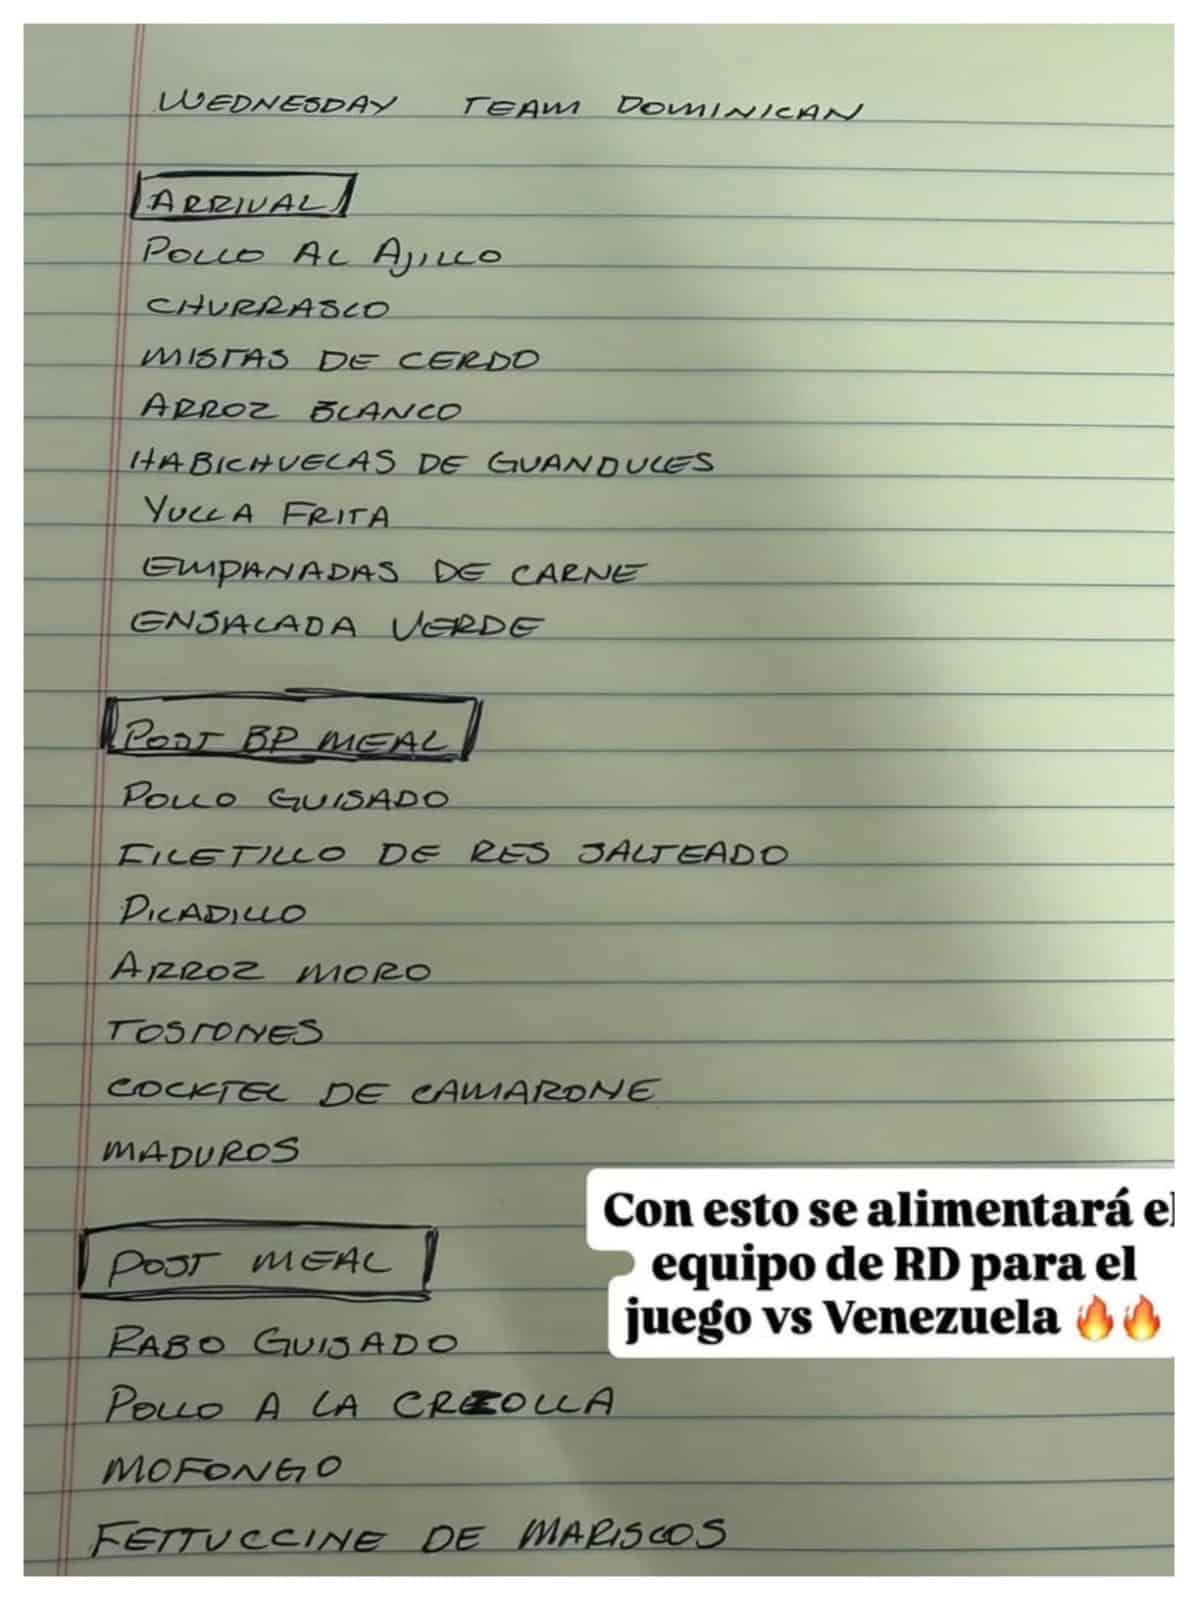 WEDNESDAY TEAM DOMINICAN
ARRIVAL
POLLO AL AJILLO
CHURRASCO
MISTAS DE CERDO
ARROZ BLANCO
HABICHUELAS DE GUANDULES
YUCCA FRITA
EMPANADAS DE CARNE
ENSALADA VERDE
POST BP MEAL
POLLO GUISADO
FILETILLO DE RES SALTEADO
PICADILLO
ARROZ MORO
TOSTONES
COCKTEL DE CAMARONE
MADUROS
Con esto se alimentará el
equipo de RD para el
juego vs Venezuela 🔥🔥
POST MEAL
RABO GUISADO
POLLO A LA CREOLLA
MOFONGO
FETTUCCINE DE MARISCOS